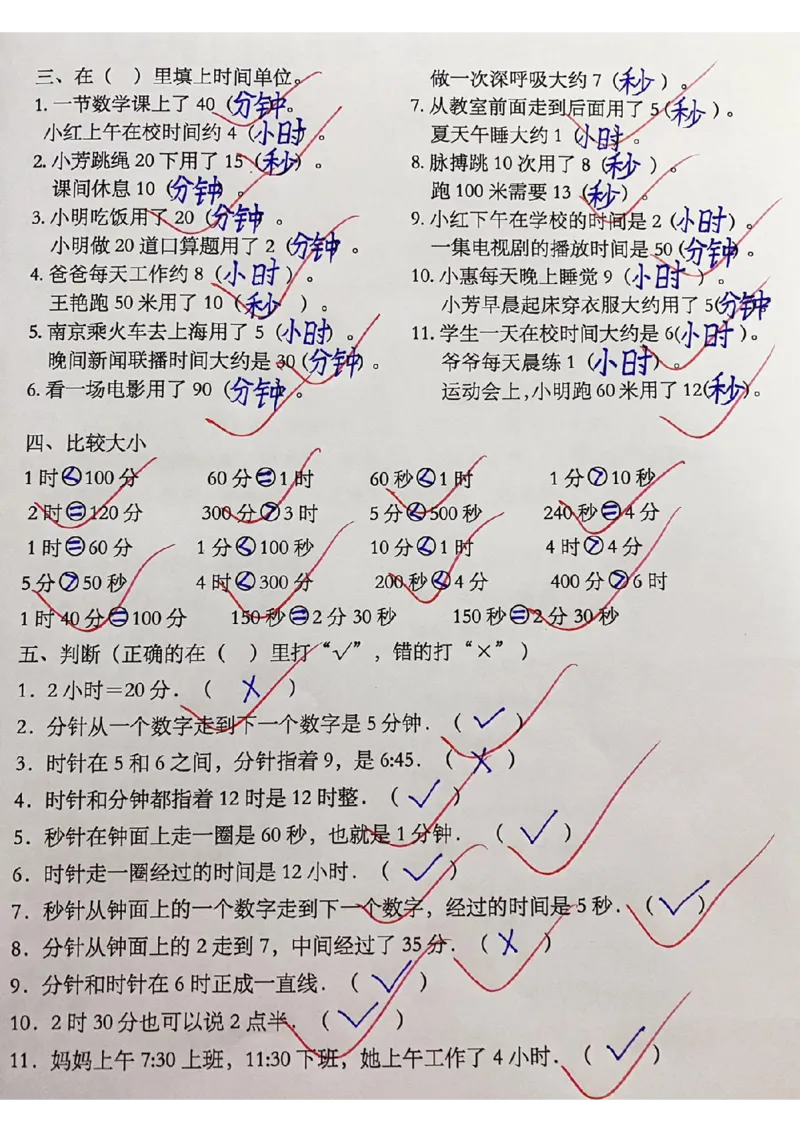 三、在（ ）里填上时间单位。
1. 一节数学课上了 40（分钟）。
小红上午在校时间约 4（小时）。
2. 小芳跳绳 20 下用了 15（秒）。
课间休息 10（分钟）。
3. 小明吃饭用了 20（分钟）。
小明做 20 道口算题用了 2（分钟）。
4. 爸爸每天工作约 8（小时）。
王艳跑 50 米用了 10（秒）。
5. 南京乘火车去上海用了 5（小时）。
晚间新闻联播时间大约是 30（分钟）。
6. 看一场电影用了 90（分钟）。
做一次深呼吸大约 7（秒）。
7. 从教室前面走到后面用了 5（秒）。
夏天午睡大约 1（小时）。
8. 脉搏跳 10 次用了 8（秒）。
跑 100 米需要 13（秒）。
9. 小红下午在学校的时间是 2（小时）。
一集电视剧的播放时间是 50（分钟）。
10. 小惠每天晚上睡觉 9（小时）。
小芳早晨起床穿衣服大约用了 5（分钟）
11. 学生一天在校时间大约是 6（小时）。
爷爷每天晨练 1（小时）。
运动会上，小明跑 60 米用了 12（秒）。
四、比较大小
1 时＜100 分 60 分＝1 时 60 秒＜1 时 1 分＞10 秒
2 时＝120 分 300 分＞3 时 5 分＜500 秒 240 秒＝4 分
1 时＝60 分 1 分＜100 秒 10 分＜1 时 4 时＞4 分
5 分＞50 秒 4 时＜300 分 200 秒＜4 分 400 分＞6 时
1 时 40 分＝100 分 150 秒＝2 分 30 秒 150 秒＝2 分 30 秒
五、判断（正确的在（ ）里打“√”，错的打“×”）
1. 2 小时＝20 分．（ × ）
2. 分针从一个数字走到下一个数字是 5 分钟．（ √ ）
3. 时针在 5 和 6 之间，分针指着 9，是 6:45．（ × ）
4. 时针和分钟都指着 12 时是 12 时整．（ √ ）
5. 秒针在钟面上走一圈是 60 秒，也就是 1 分钟．（ √ ）
6. 时针走一圈经过的时间是 12 小时．（ √ ）
7. 秒针从钟面上的一个数字走到下一个数字，经过的时间是 5 秒．（ √ ）
8. 分针从钟面上的 2 走到 7，中间经过了 35 分．（ × ）
9. 分针和时针在 6 时正成一直线．（ √ ）
10. 2 时 30 分也可以说 2 点半．（ √ ）
11. 妈妈上午 7:30 上班，11:30 下班，她上午工作了 4 小时．（ √ ）